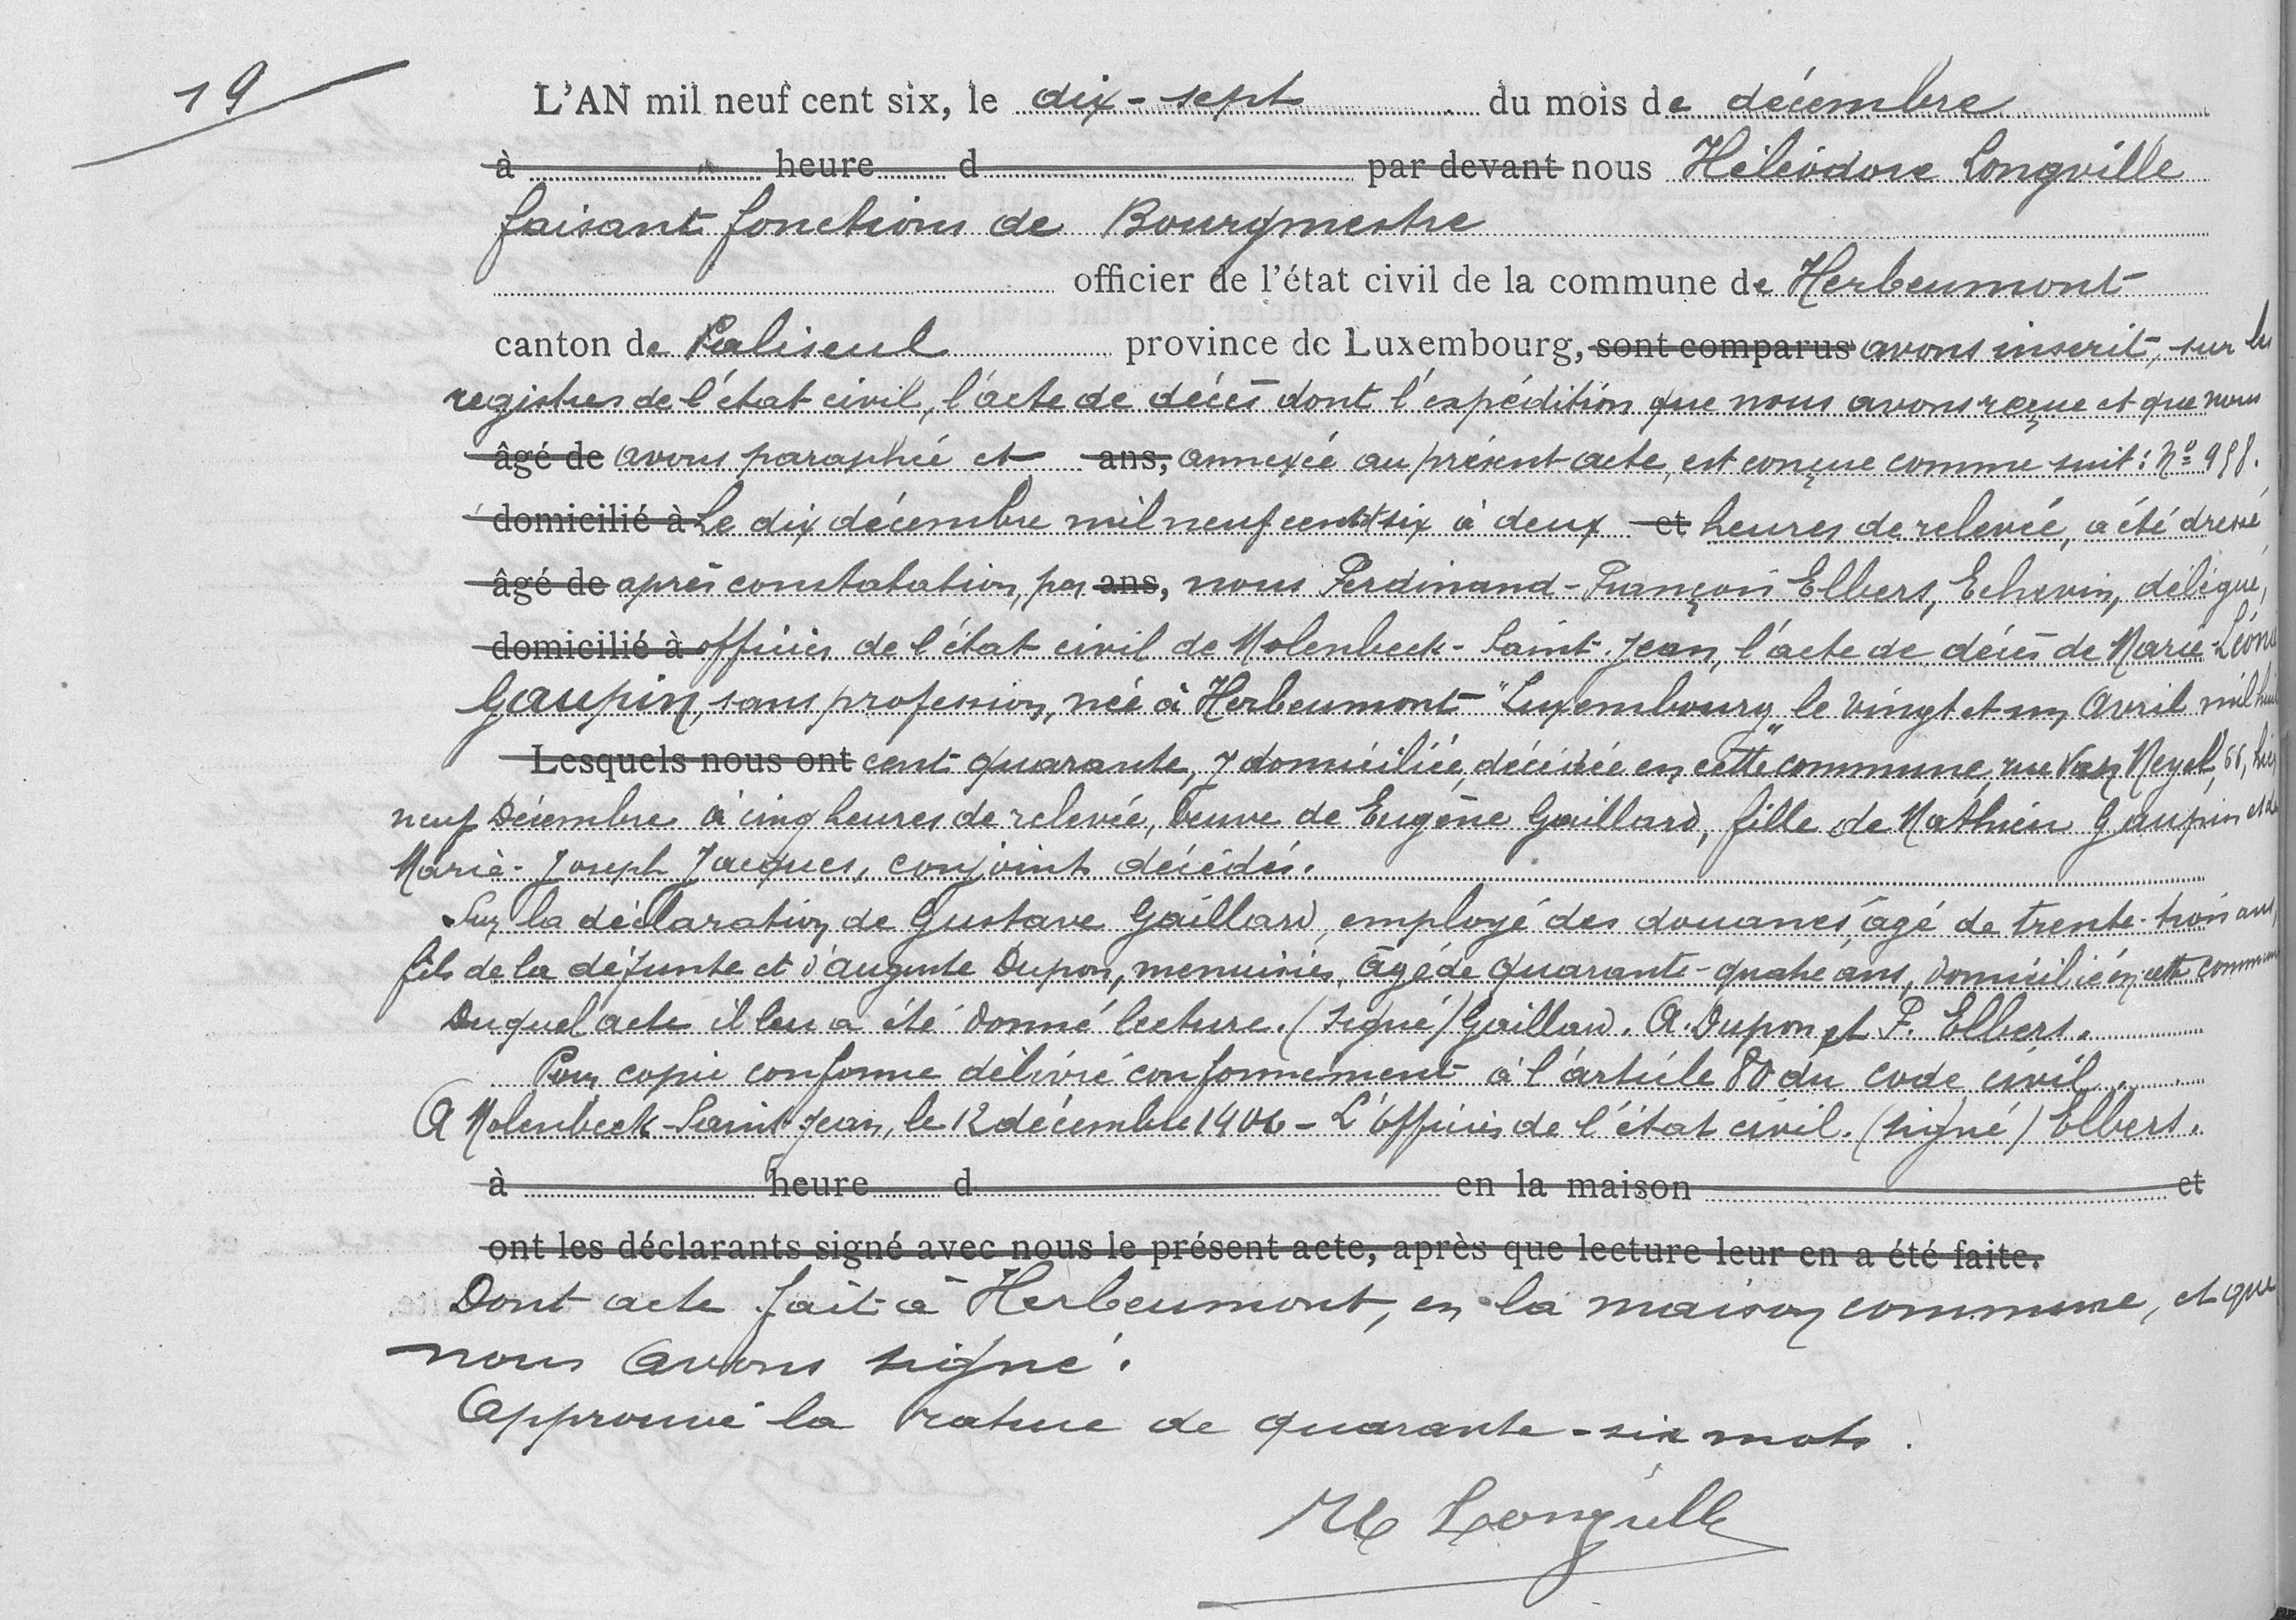 19
L'AN mil neuf cent six, le dix-sept du mois de décembre
à heure d par devant nous Héliodore Longville
faisant fonctions de Bourgmestre
officier de l'état civil de la commune de Herbeumont
canton de Paliseul province de Luxembourg, sont comparus avons inscrit, sur les
registres de l'état civil, l'acte de décès dont l'expédition que nous avons reçue et que nous
âgé de avons paraphée et ans, annexée au présent acte, est conçue comme suit : No 958.
domicilié à Le dix décembre mil neuf cent six à deux et heures de relevée, a été dressé
âgé de après constatation, par ans, nous Ferdinand-François Elbers, Echevin, délégué,
domicilié à officier de l'état civil de Molenbeek-Saint-Jean, l'acte de décès de Marie-Léonie
Gaupin, sans profession, née à Herbeumont "Luxembourg" le vingt et un Avril mil huit
Lesquels nous ont cent quarante, y domiciliée, décédée en cette commune, rue Van Meyel, 66, hier
neuf Décembre à cinq heures de relevée, Veuve de Eugène Gaillard, fille de Mathieu Gaupin et de
Marie-Joseph Jacques, conjoints décédés.
Sur la déclaration de Gustave Gaillard, employé des douanes, âgé de trente-trois ans,
fils de la défunte et d'auguste Dupon, menuisier, âgé de quarante-quatre ans, domicilié en cette commune
Duquel acte il leu a été donné lecture. (signé) Gaillard. A. Dupon et F. Elbers.
Pour copie conforme délivré conformément à l'article 80 du code civil.
A Molenbeek-Saint-Jean, le 12 décembre 1906 - L'Officier de l'état civil. (signé) Elbers.
à heure d en la maison et
ont les déclarants signé avec nous le présent acte, après que lecture leur en a été faite.
Dont acte fait à Herbeumont, en la maison commune, et que
nous avons signé.
Approuvé la rature de quarante-six mots.
H Longville